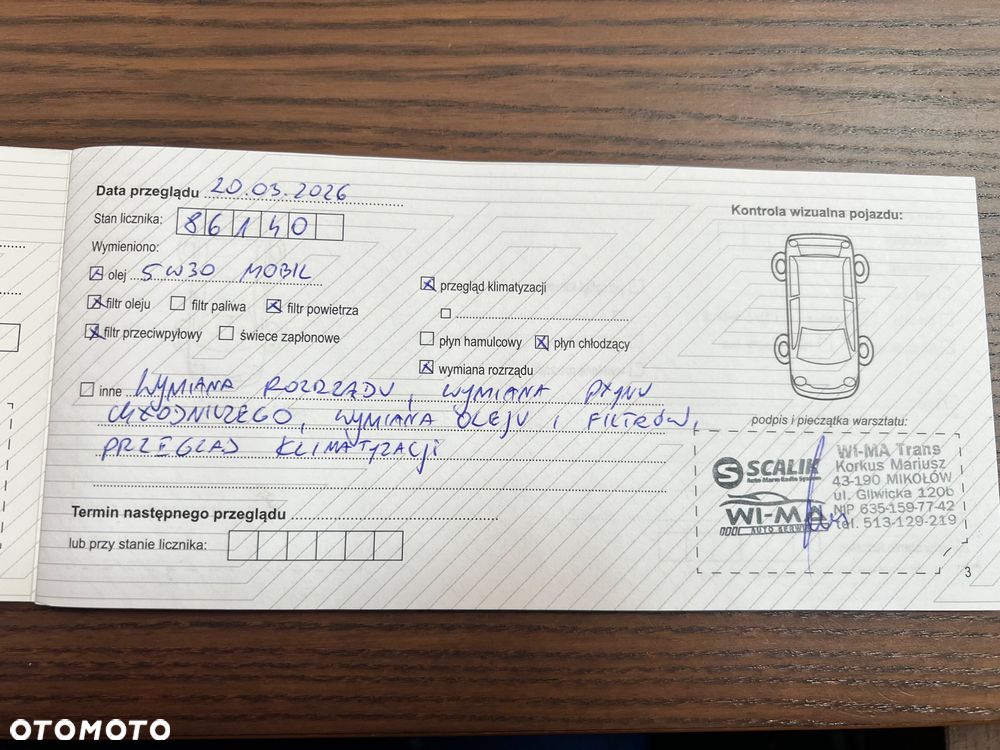 Data przeglądu 20.03.2026
Stan licznika: 86140
Wymieniono:
olej 5W30 MOBIL
filtr oleju filtr paliwa filtr powietrza
filtr przeciwpyłowy świece zapłonowe
przegląd klimatyzacji
płyn hamulcowy płyn chłodzący
wymiana rozrządu
inne WYMIANA ROZRZĄDU, WYMIANA PŁYNU
CHŁODNICZEGO, WYMIANA OLEJU I FILTRÓW,
PRZEGLĄD KLIMATYZACJI
Termin następnego przeglądu
lub przy stanie licznika:
Kontrola wizualna pojazdu:
podpis i pieczątka warsztatu:
SCALIK
Auto Alarm Radio System
WI-MA
AUTO SERWIS
WI-MA Trans
Korkus Mariusz
43-190 MIKOŁÓW
ul. Gliwicka 120b
NIP 635-159-77-42
tel. 513-129-219
3
OTOMOTO